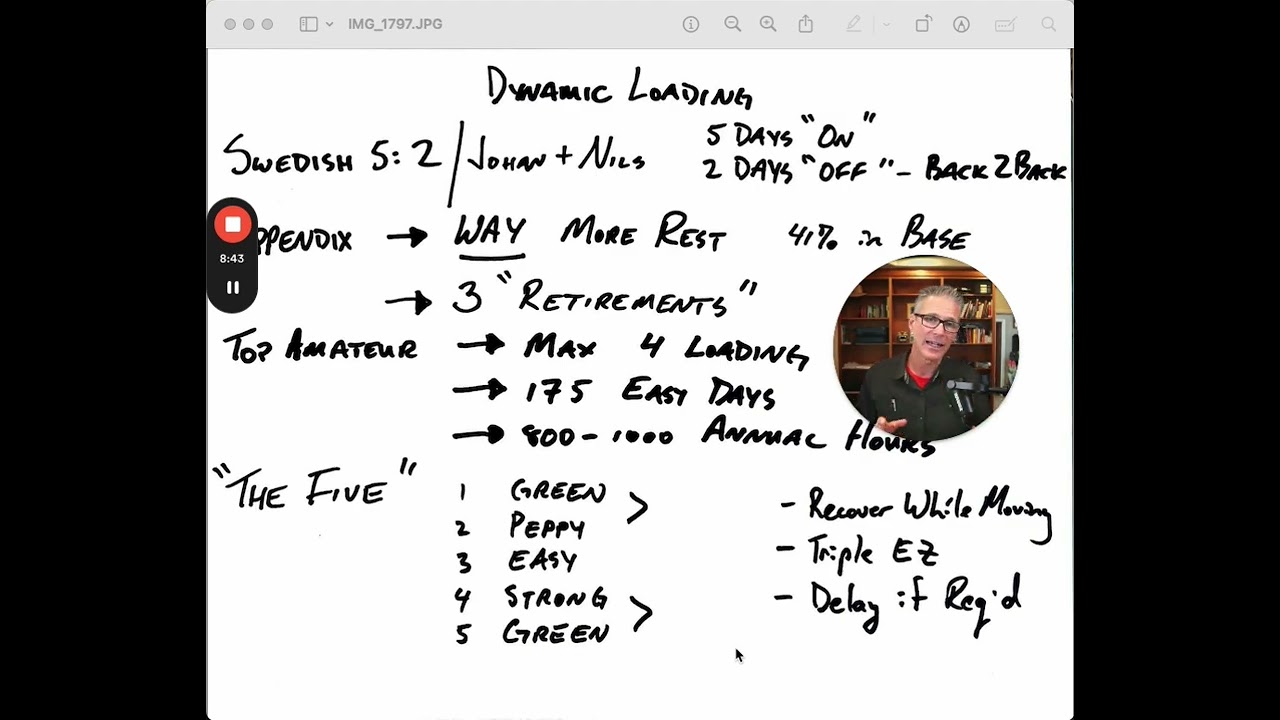 IMG_1797.JPG
DYNAMIC LOADING
SWEDISH 5:2 / JOHAN + NILS
5 DAYS "ON"
2 DAYS "OFF" - BACK2BACK
PPENDIX → WAY MORE REST 41% in BASE
8:43
→ 3 "RETIREMENTS"
TOP AMATEUR → MAX 4 LOADING
→ 175 EASY DAYS
→ 800-1000 ANNUAL HOURS
"THE FIVE"
1 GREEN >
2 PEPPY
3 EASY
4 STRONG >
5 GREEN
- Recover While Moving
- Triple EZ
- Delay if Req'd